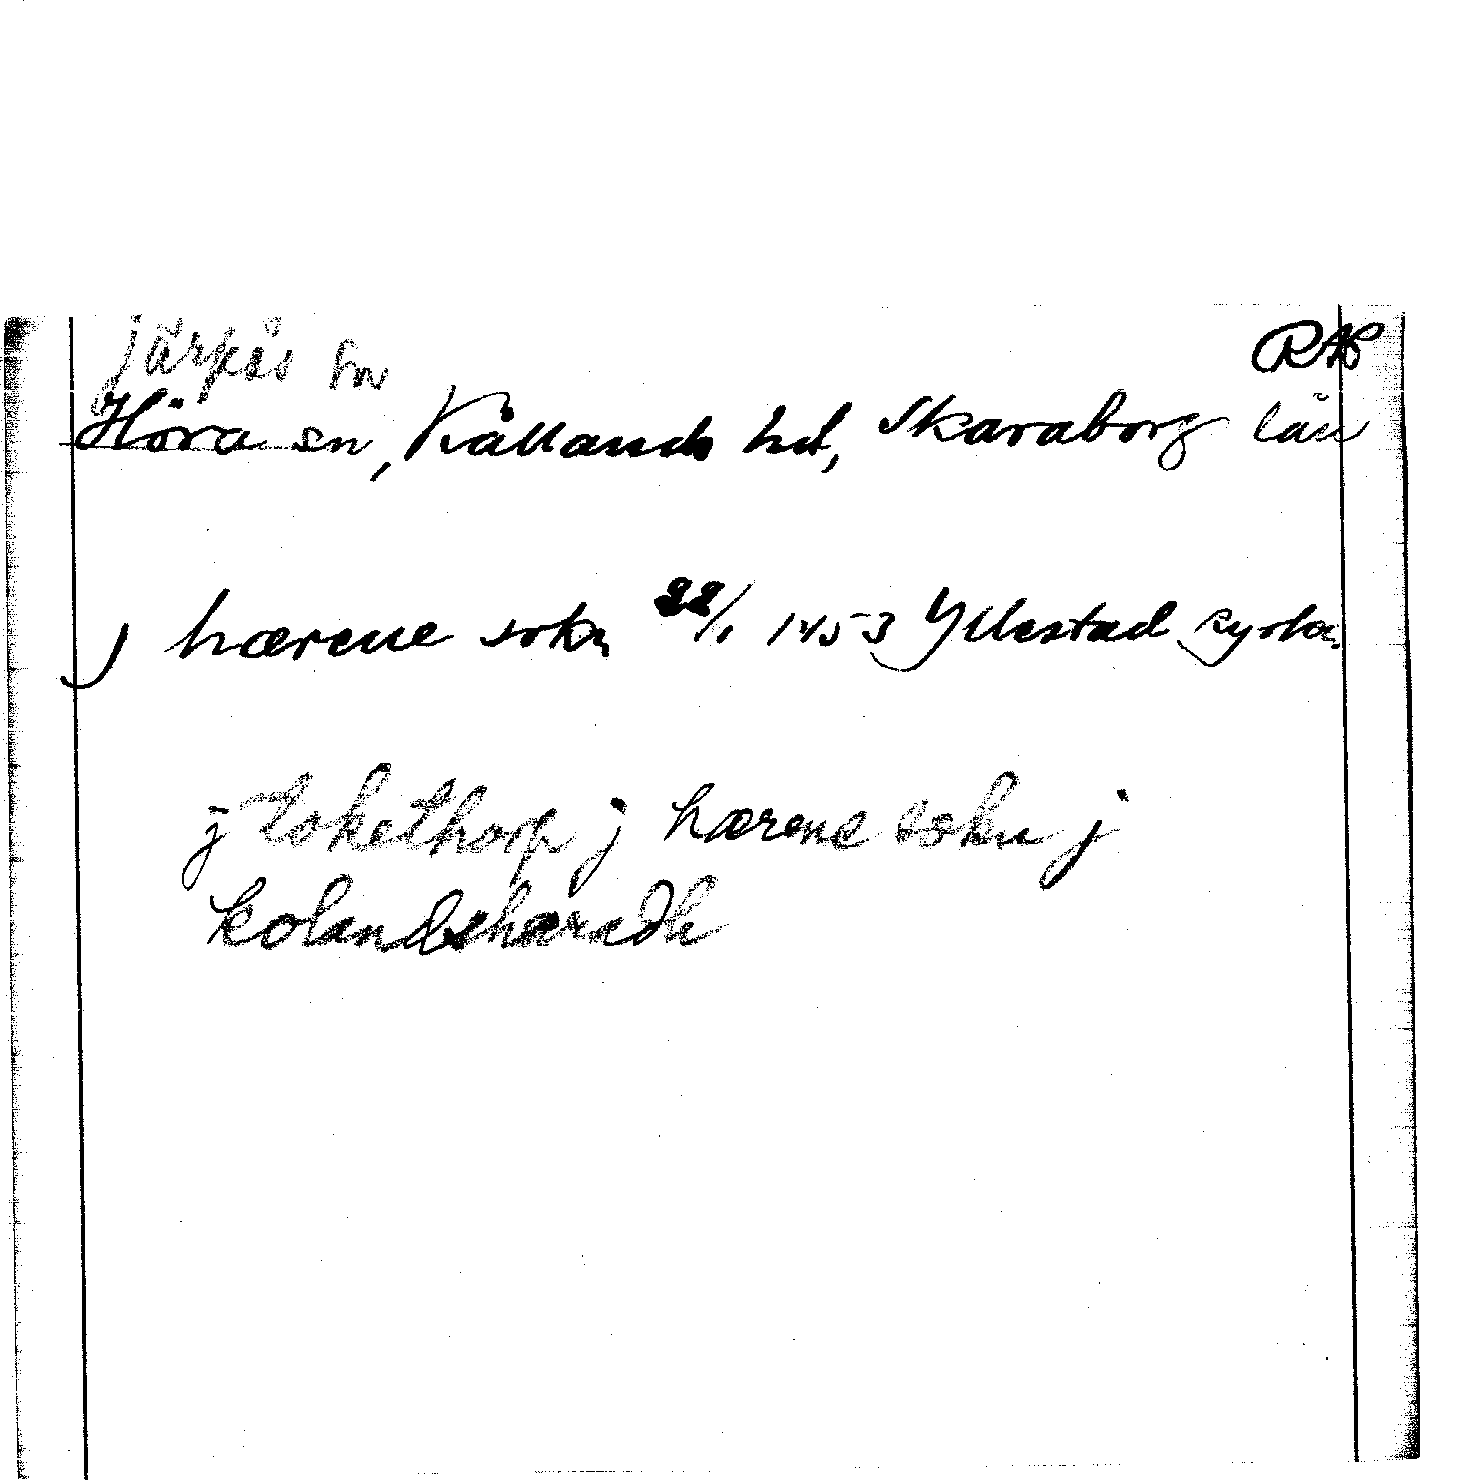 Järpås sn
RAP
Höra sn, Kållands hd, Skaraborg län
J hærene sokn 22/1 1453 Yllestad kyrka.
j tokethorp j hærene sokn j
kolandshæradh